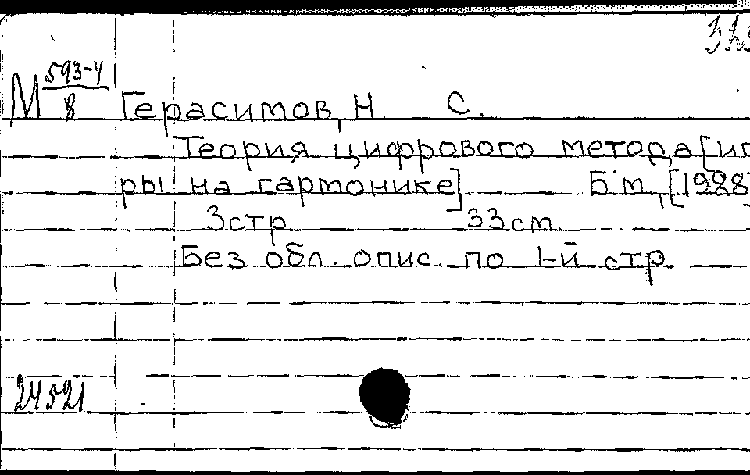 М 593-4/8
Герасимов, Н С.
Теория цифрового метода [иг
ры на гармонике] Б.м., [1928
3 стр 33 см
Без обл. опис. по 1-й стр.
24521